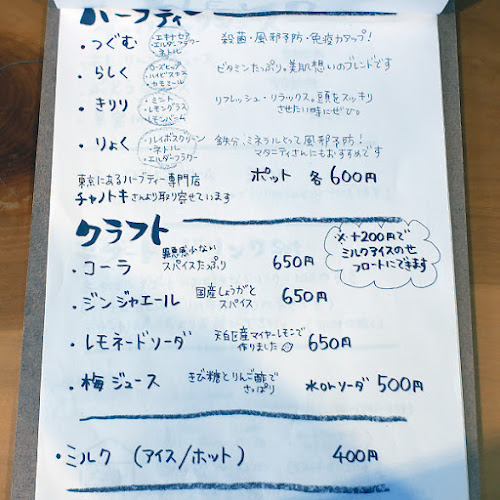 ハーブティー
・つぐむ ・エキナセア ・エルダーフラワー ・ネトル 殺菌・風邪予防・免疫力アップ!
・らしく ・ローズヒップ ・ハイビスカス ・カモミール ビタミンたっぷり。美肌想いのブレンドです
・きりり ・ミント ・レモングラス ・レモンバーム リフレッシュ・リラックス。頭をスッキリ
させたい時にぜひ。
・りょく ・ルイボスグリーン ・ネトル ・エルダーフラワー 鉄分、ミネラルとって風邪予防!
マタニティさんにもおすすめです
東京にあるハーブティー専門店
チャノトキさんより取り寄せています
ポット 各600円
クラフト
・コーラ 罪悪感少ない
スパイスたっぷり 650円
※+200円で
ミルクアイスのせ
フロートにできます
・ジンジャエール 国産しょうがと
スパイス 650円
・レモネードソーダ 天白区産マイヤーレモンで
作りました 650円
・梅ジュース きび糖とりんご酢で
さっぱり 水orソーダ 500円
・ミルク (アイス/ホット) 400円